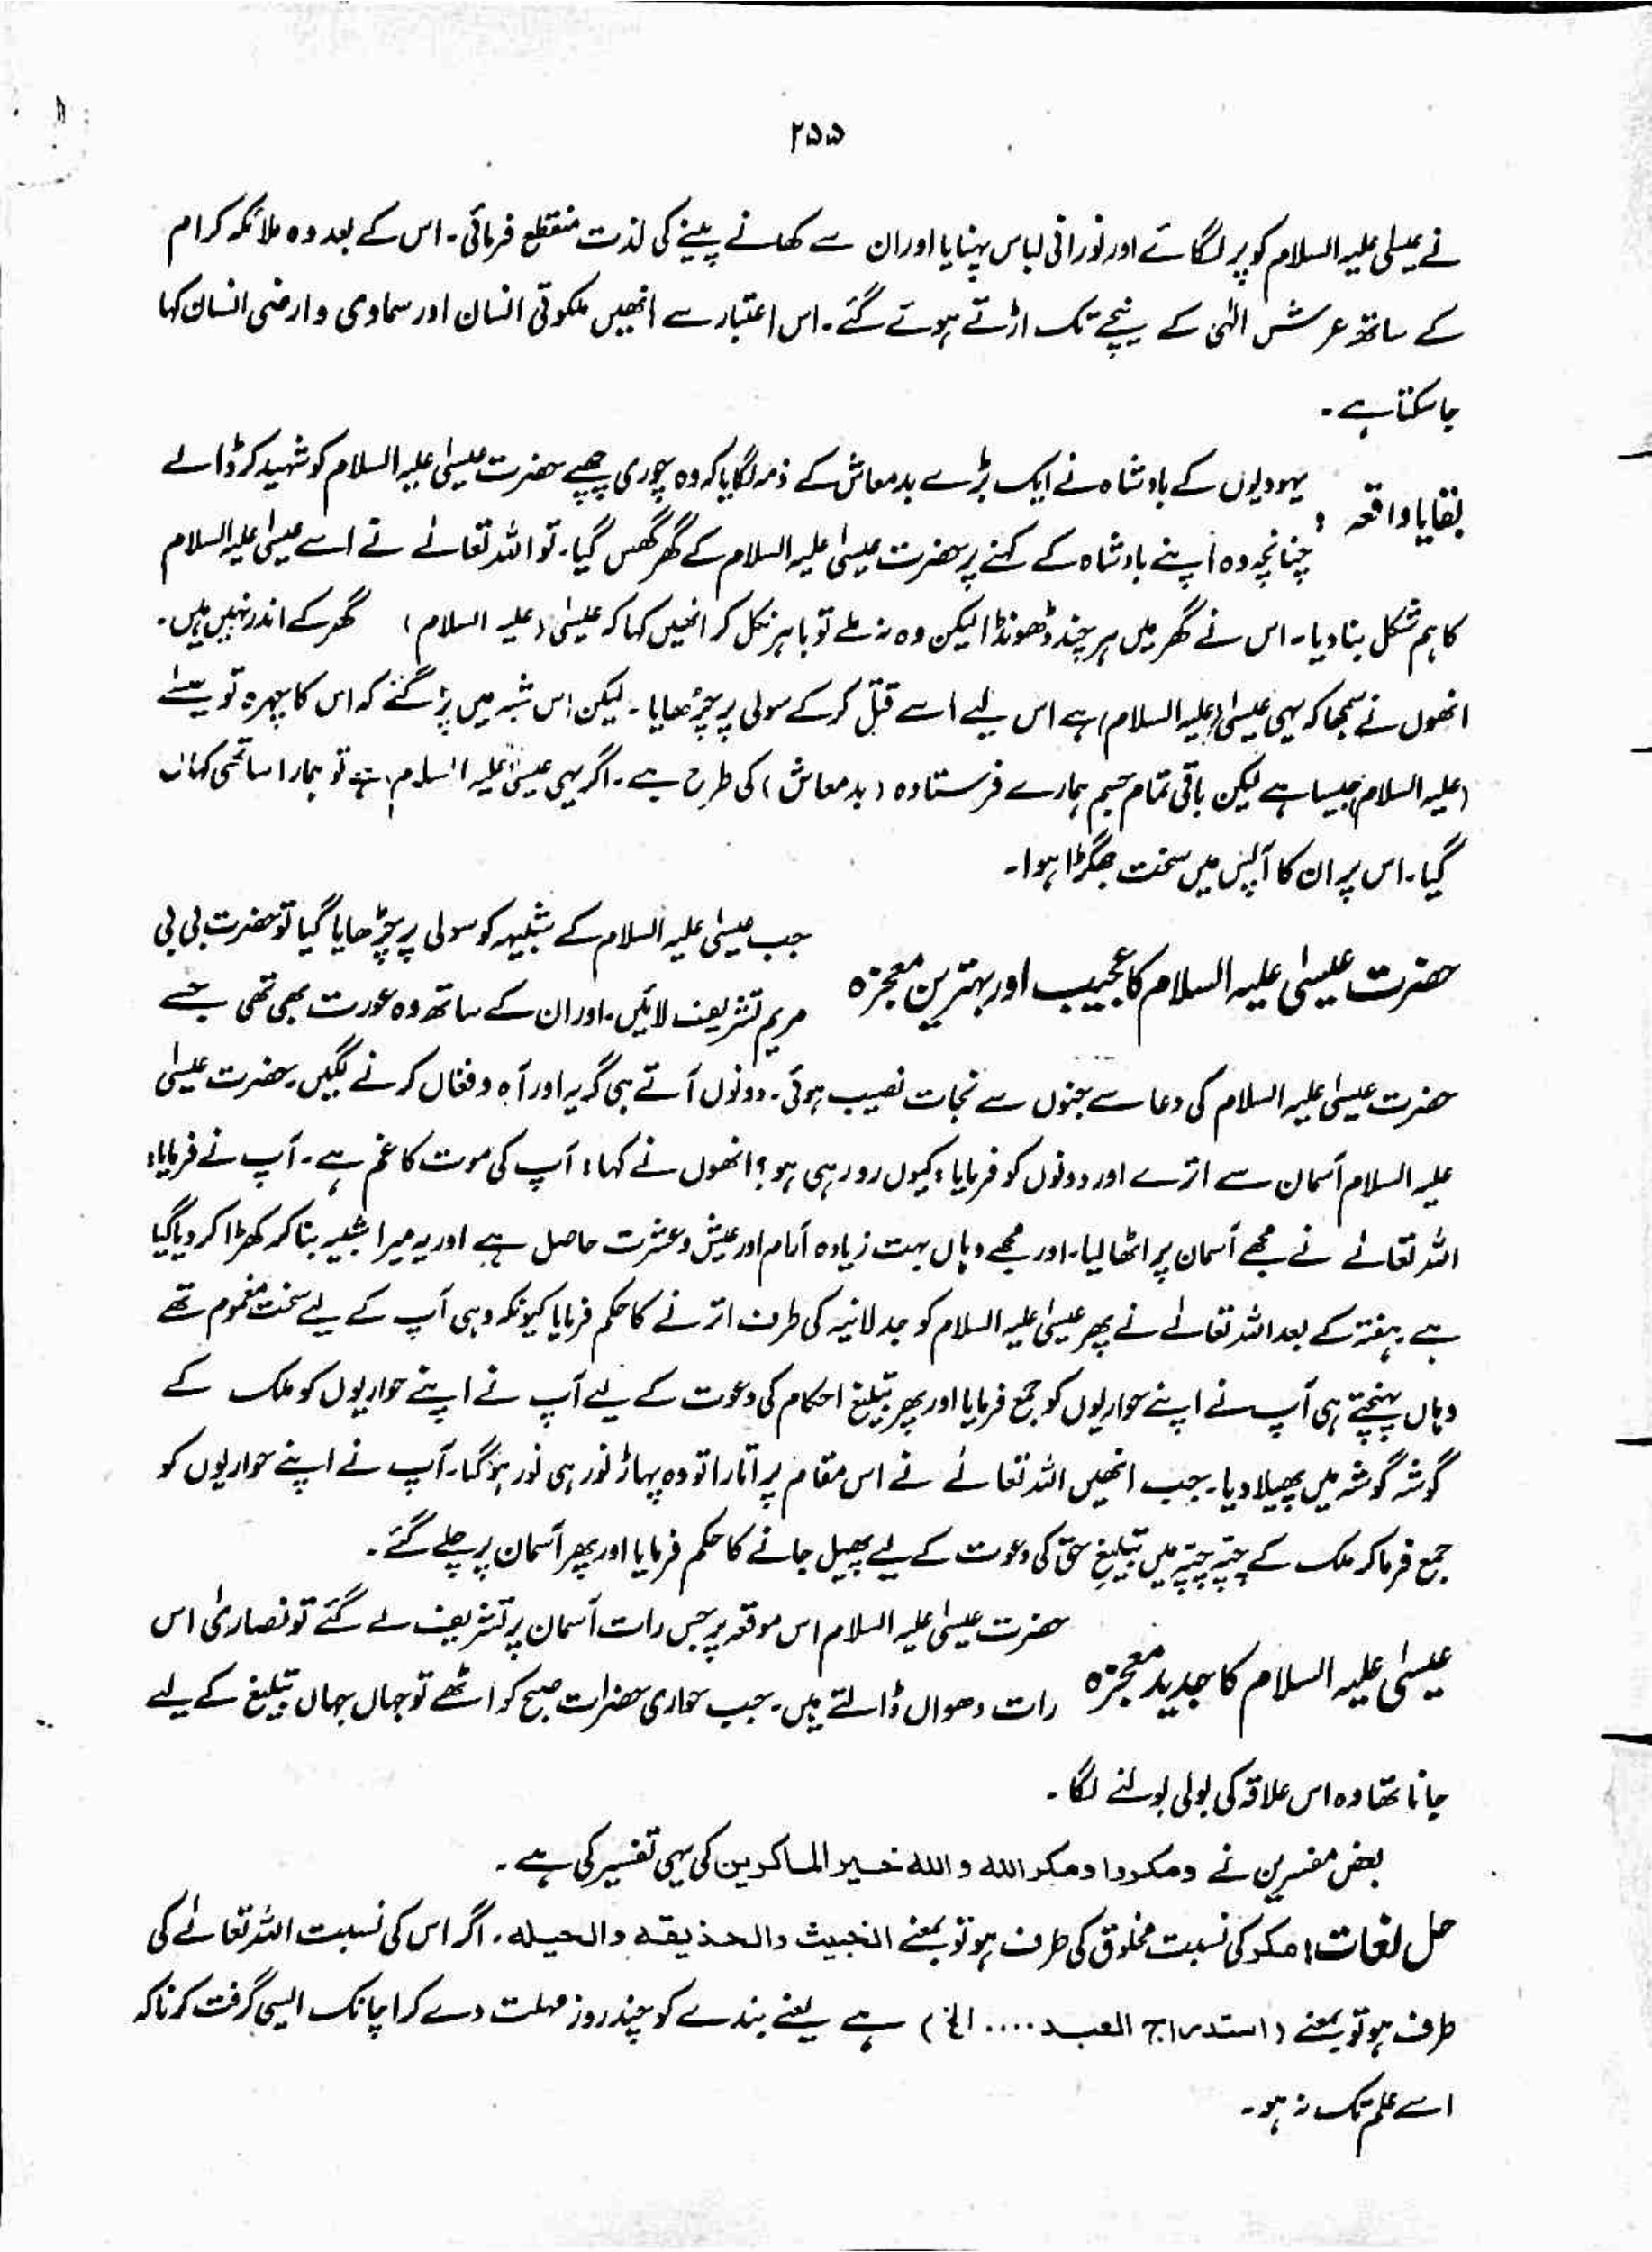 ۲۵۵
نے عیسیٰ علیہ السلام کو پر لگائے اور نورانی لباس پہنایا اور ان سے کھانے پینے کی لذت منقطع فرمائی۔ اس کے بعد وہ ملائکہ کرام
کے ساتھ عرش الٰہی کے نیچے تک اڑتے ہوئے گئے۔ اس اعتبار سے انھیں ملکوتی انسان اور سماوی و ارضی انسان کہا
جا سکتا ہے۔
بقایا واقعہ : یہودیوں کے بادشاہ نے ایک بڑے بدمعاش کے ذمہ لگایا کہ وہ چوری چھپے حضرت عیسیٰ علیہ السلام کو شہید کر ڈالے
چنانچہ وہ اپنے بادشاہ کے کہنے پر حضرت عیسیٰ علیہ السلام کے گھر گھس گیا۔ تو اللہ تعالےٰ نے اسے عیسیٰ علیہ السلام
کا ہم شکل بنا دیا۔ اس نے گھر میں ہر چند ڈھونڈا لیکن وہ نہ ملے تو باہر نکل کر انھیں کہا کہ عیسیٰ (علیہ السلام) گھر کے اندر نہیں ہیں۔
انھوں نے سمجھا کہ یہی عیسیٰ (علیہ السلام) ہے اس لیے اسے قتل کر کے سولی پر چڑھایا۔ لیکن اس شبہ میں پڑ گئے کہ اس کا چہرہ تو عیسٰے
(علیہ السلام) جیسا ہے لیکن باقی تمام جسم ہمارے فرستادہ (بدمعاش) کی طرح ہے۔ اگر یہی عیسیٰ علیہ السلام ہے تو ہمارا ساتھی کہاں
گیا۔ اس پر ان کا آپس میں سخت جھگڑا ہوا۔
حضرت عیسیٰ علیہ السلام کا عجیب اور بہترین معجزہ
جب عیسیٰ علیہ السلام کے شبیہہ کو سولی پر چڑھایا گیا تو حضرت بی بی
مریم تشریف لائیں۔ اور ان کے ساتھ وہ عورت بھی تھی جسے
حضرت عیسیٰ علیہ السلام کی دعا سے جنوں سے نجات نصیب ہوئی۔ دونوں آتے ہی گریہ اور آہ و فغاں کرنے لگیں۔ حضرت عیسیٰ
علیہ السلام آسمان سے اترے اور دونوں کو فرمایا: کیوں رو رہی ہو؟ انھوں نے کہا: آپ کی موت کا غم ہے۔ آپ نے فرمایا:
اللہ تعالےٰ نے مجھے آسمان پر اٹھا لیا۔ اور مجھے وہاں بہت زیادہ آرام اور عیش و عشرت حاصل ہے اور یہ میرا شبیہ بنا کر کھڑا کر دیا گیا
ہے ہفتہ کے بعد اللہ تعالےٰ نے پھر عیسیٰ علیہ السلام کو جدلانیہ کی طرف اترنے کا حکم فرمایا کیونکہ وہی آپ کے لیے سخت مغموم تھے
وہاں پہنچتے ہی آپ نے اپنے حواریوں کو جمع فرمایا اور پھر تبلیغ احکام کی دعوت کے لیے آپ نے اپنے حواریوں کو ملک کے
گوشہ گوشہ میں پھیلا دیا۔ جب انھیں اللہ تعالےٰ نے اس مقام پر اتارا تو وہ پہاڑ نور ہی نور ہو گیا۔ آپ نے اپنے حواریوں کو
جمع فرما کر ملک کے چپّہ چپّہ میں تبلیغِ حق کی دعوت کے لیے پھیل جانے کا حکم فرمایا اور پھر آسمان پر چلے گئے۔
عیسیٰ علیہ السلام کا جدید معجزہ
حضرت عیسیٰ علیہ السلام اس موقعہ پر جس رات آسمان پر تشریف لے گئے تو نصاریٰ اس
رات دھواں ڈالتے ہیں۔ جب حواری حضرات صبح کو اٹھے تو جہاں جہاں تبلیغ کے لیے
جانا تھا وہ اس علاقہ کی بولی بولنے لگا۔
بعض مفسرین نے ومکروا ومکر اللہ واللہ خیر الماکرین کی یہی تفسیر کی ہے۔
حل لغات: مکر کی نسبت مخلوق کی طرف ہو تو بمعنے الخبیث والحذیقہ والحیلہ۔ اگر اس کی نسبت اللہ تعالےٰ کی
طرف ہو تو بمعنے (استدراج العبد .... الخ) ہے یعنے بندے کو چند روز مہلت دے کر اچانک ایسی گرفت کرنا کہ
اسے علم تک نہ ہو۔